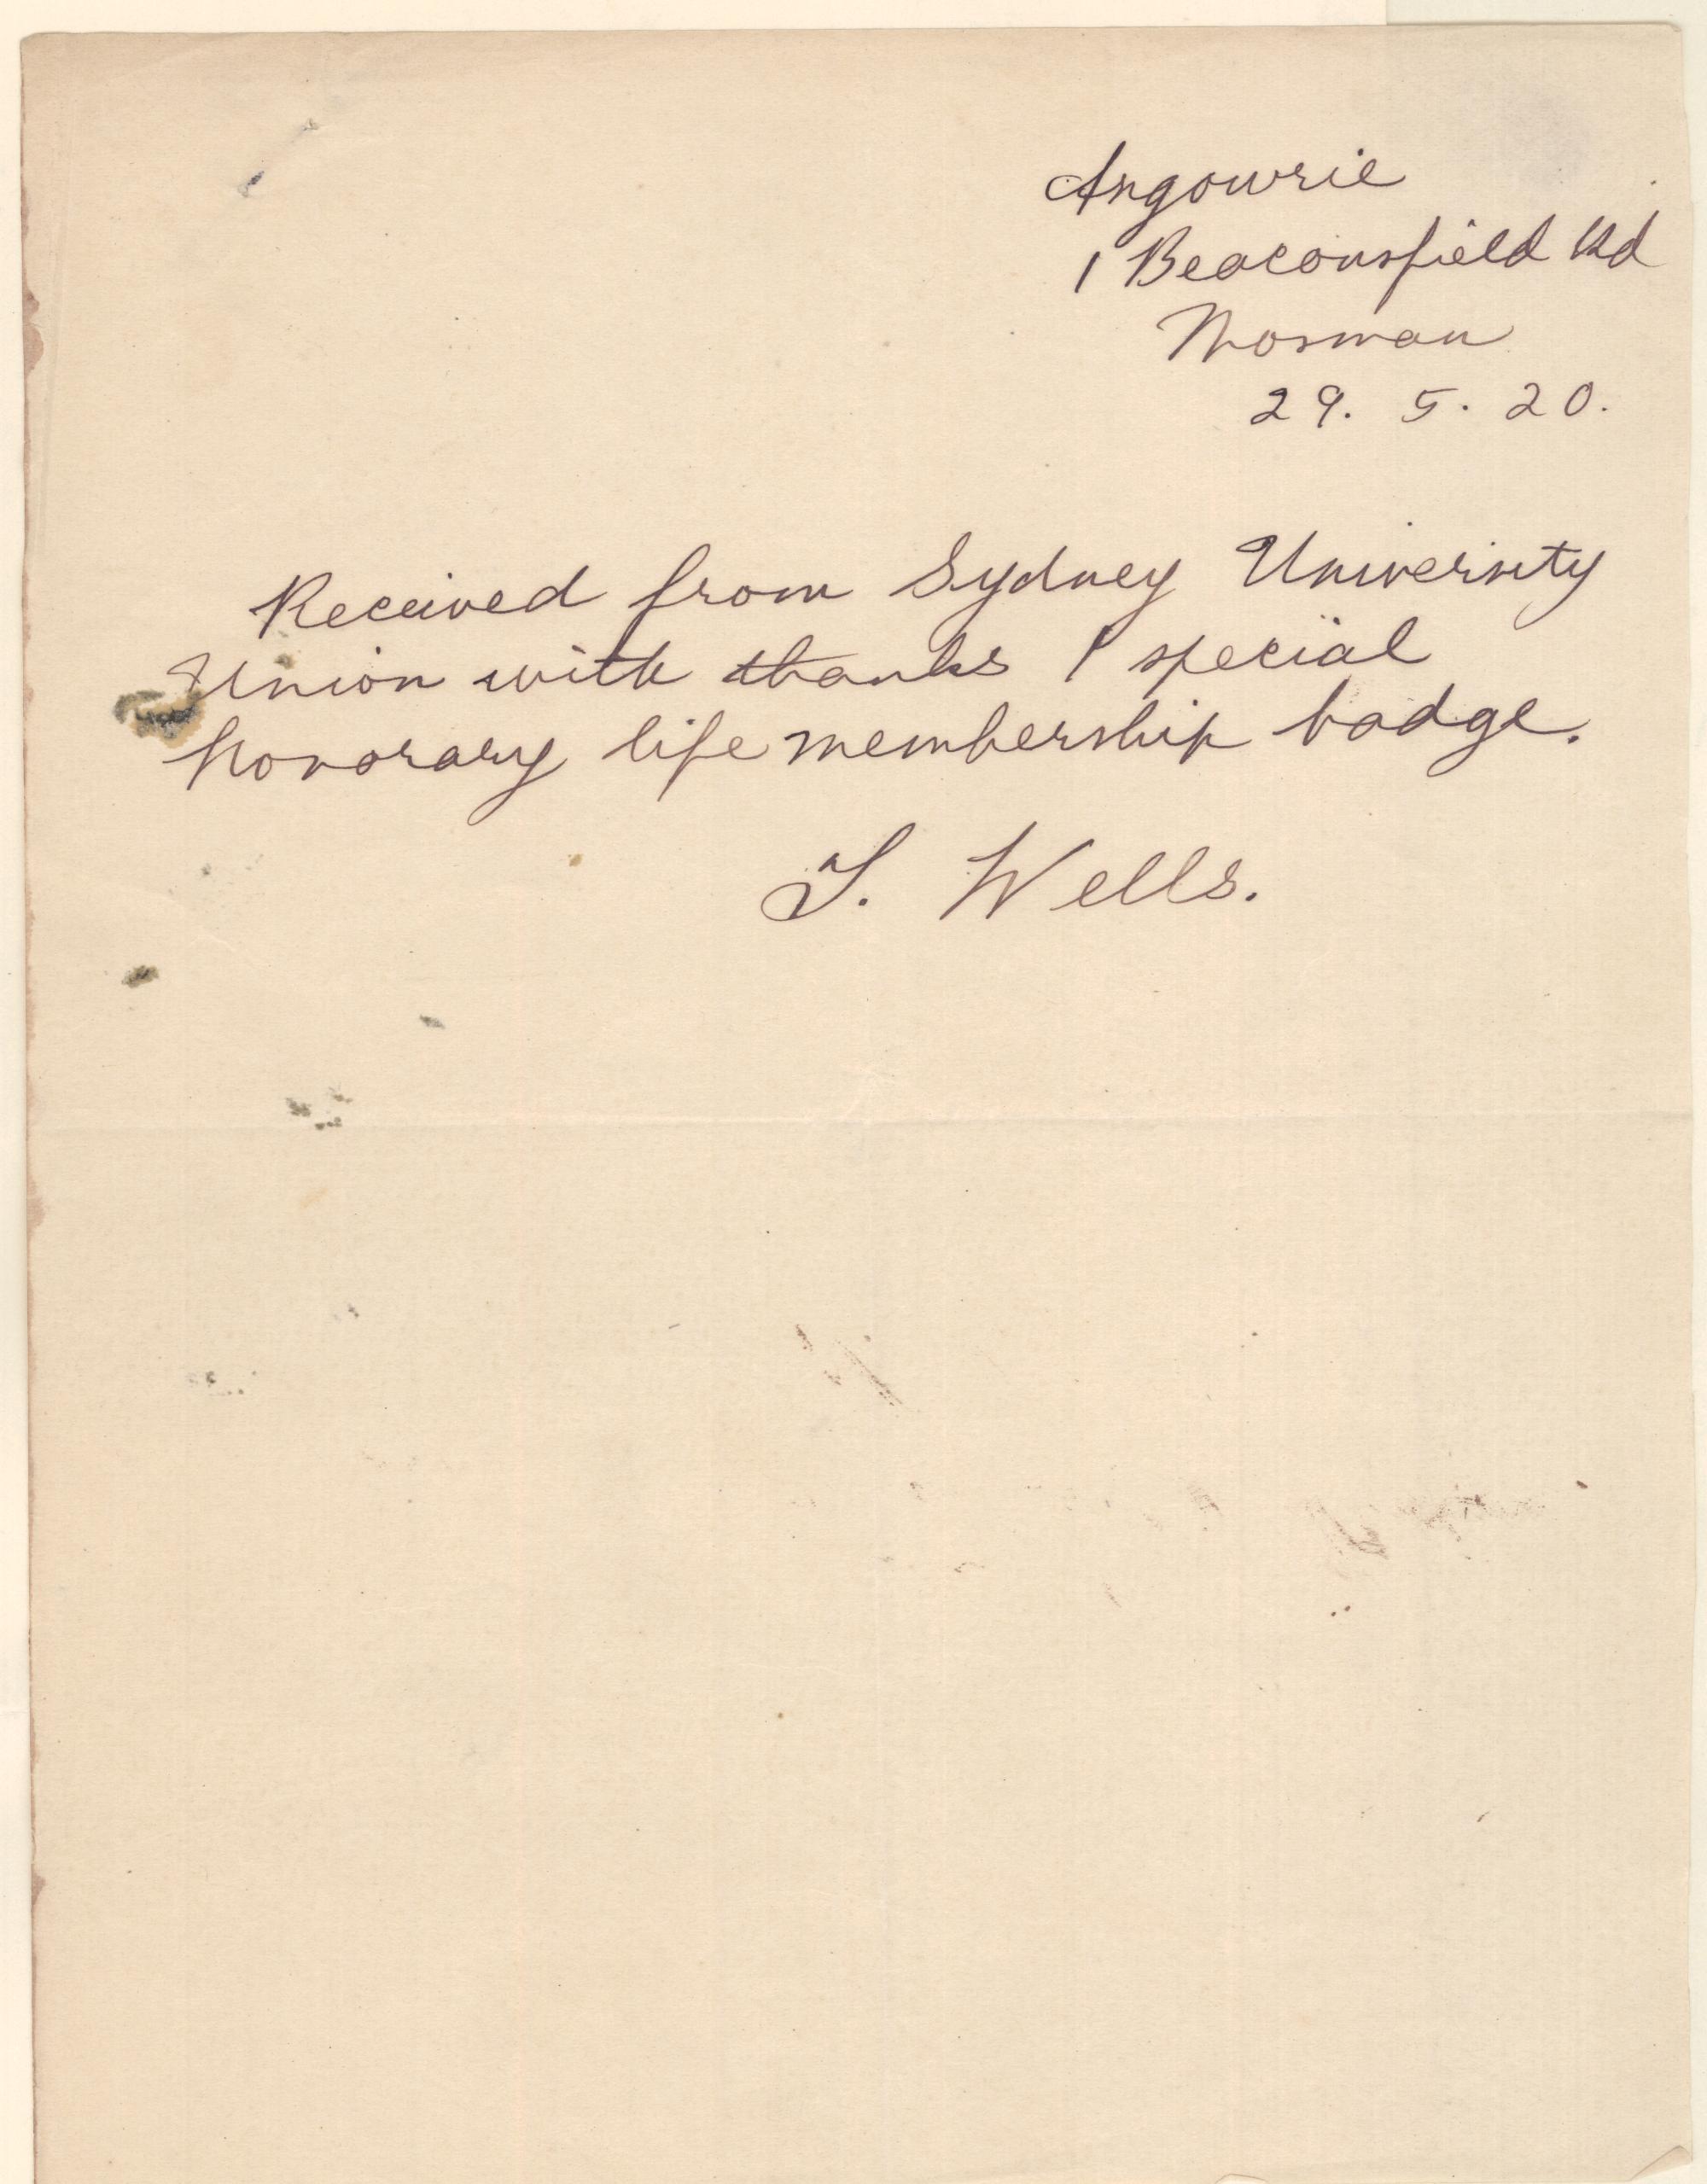 Angowrie
1 Beaconsfield Rd
Mosman
29. 5. 20.
Received from Sydney University
Union with thanks 1 special
honorary life membership badge.
T. Wells.